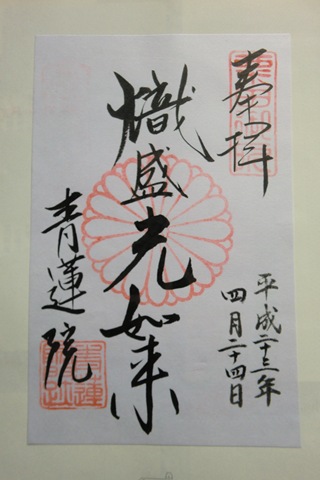 奉拝
平成二十三年
四月二十四日
熾盛光如来
青蓮院